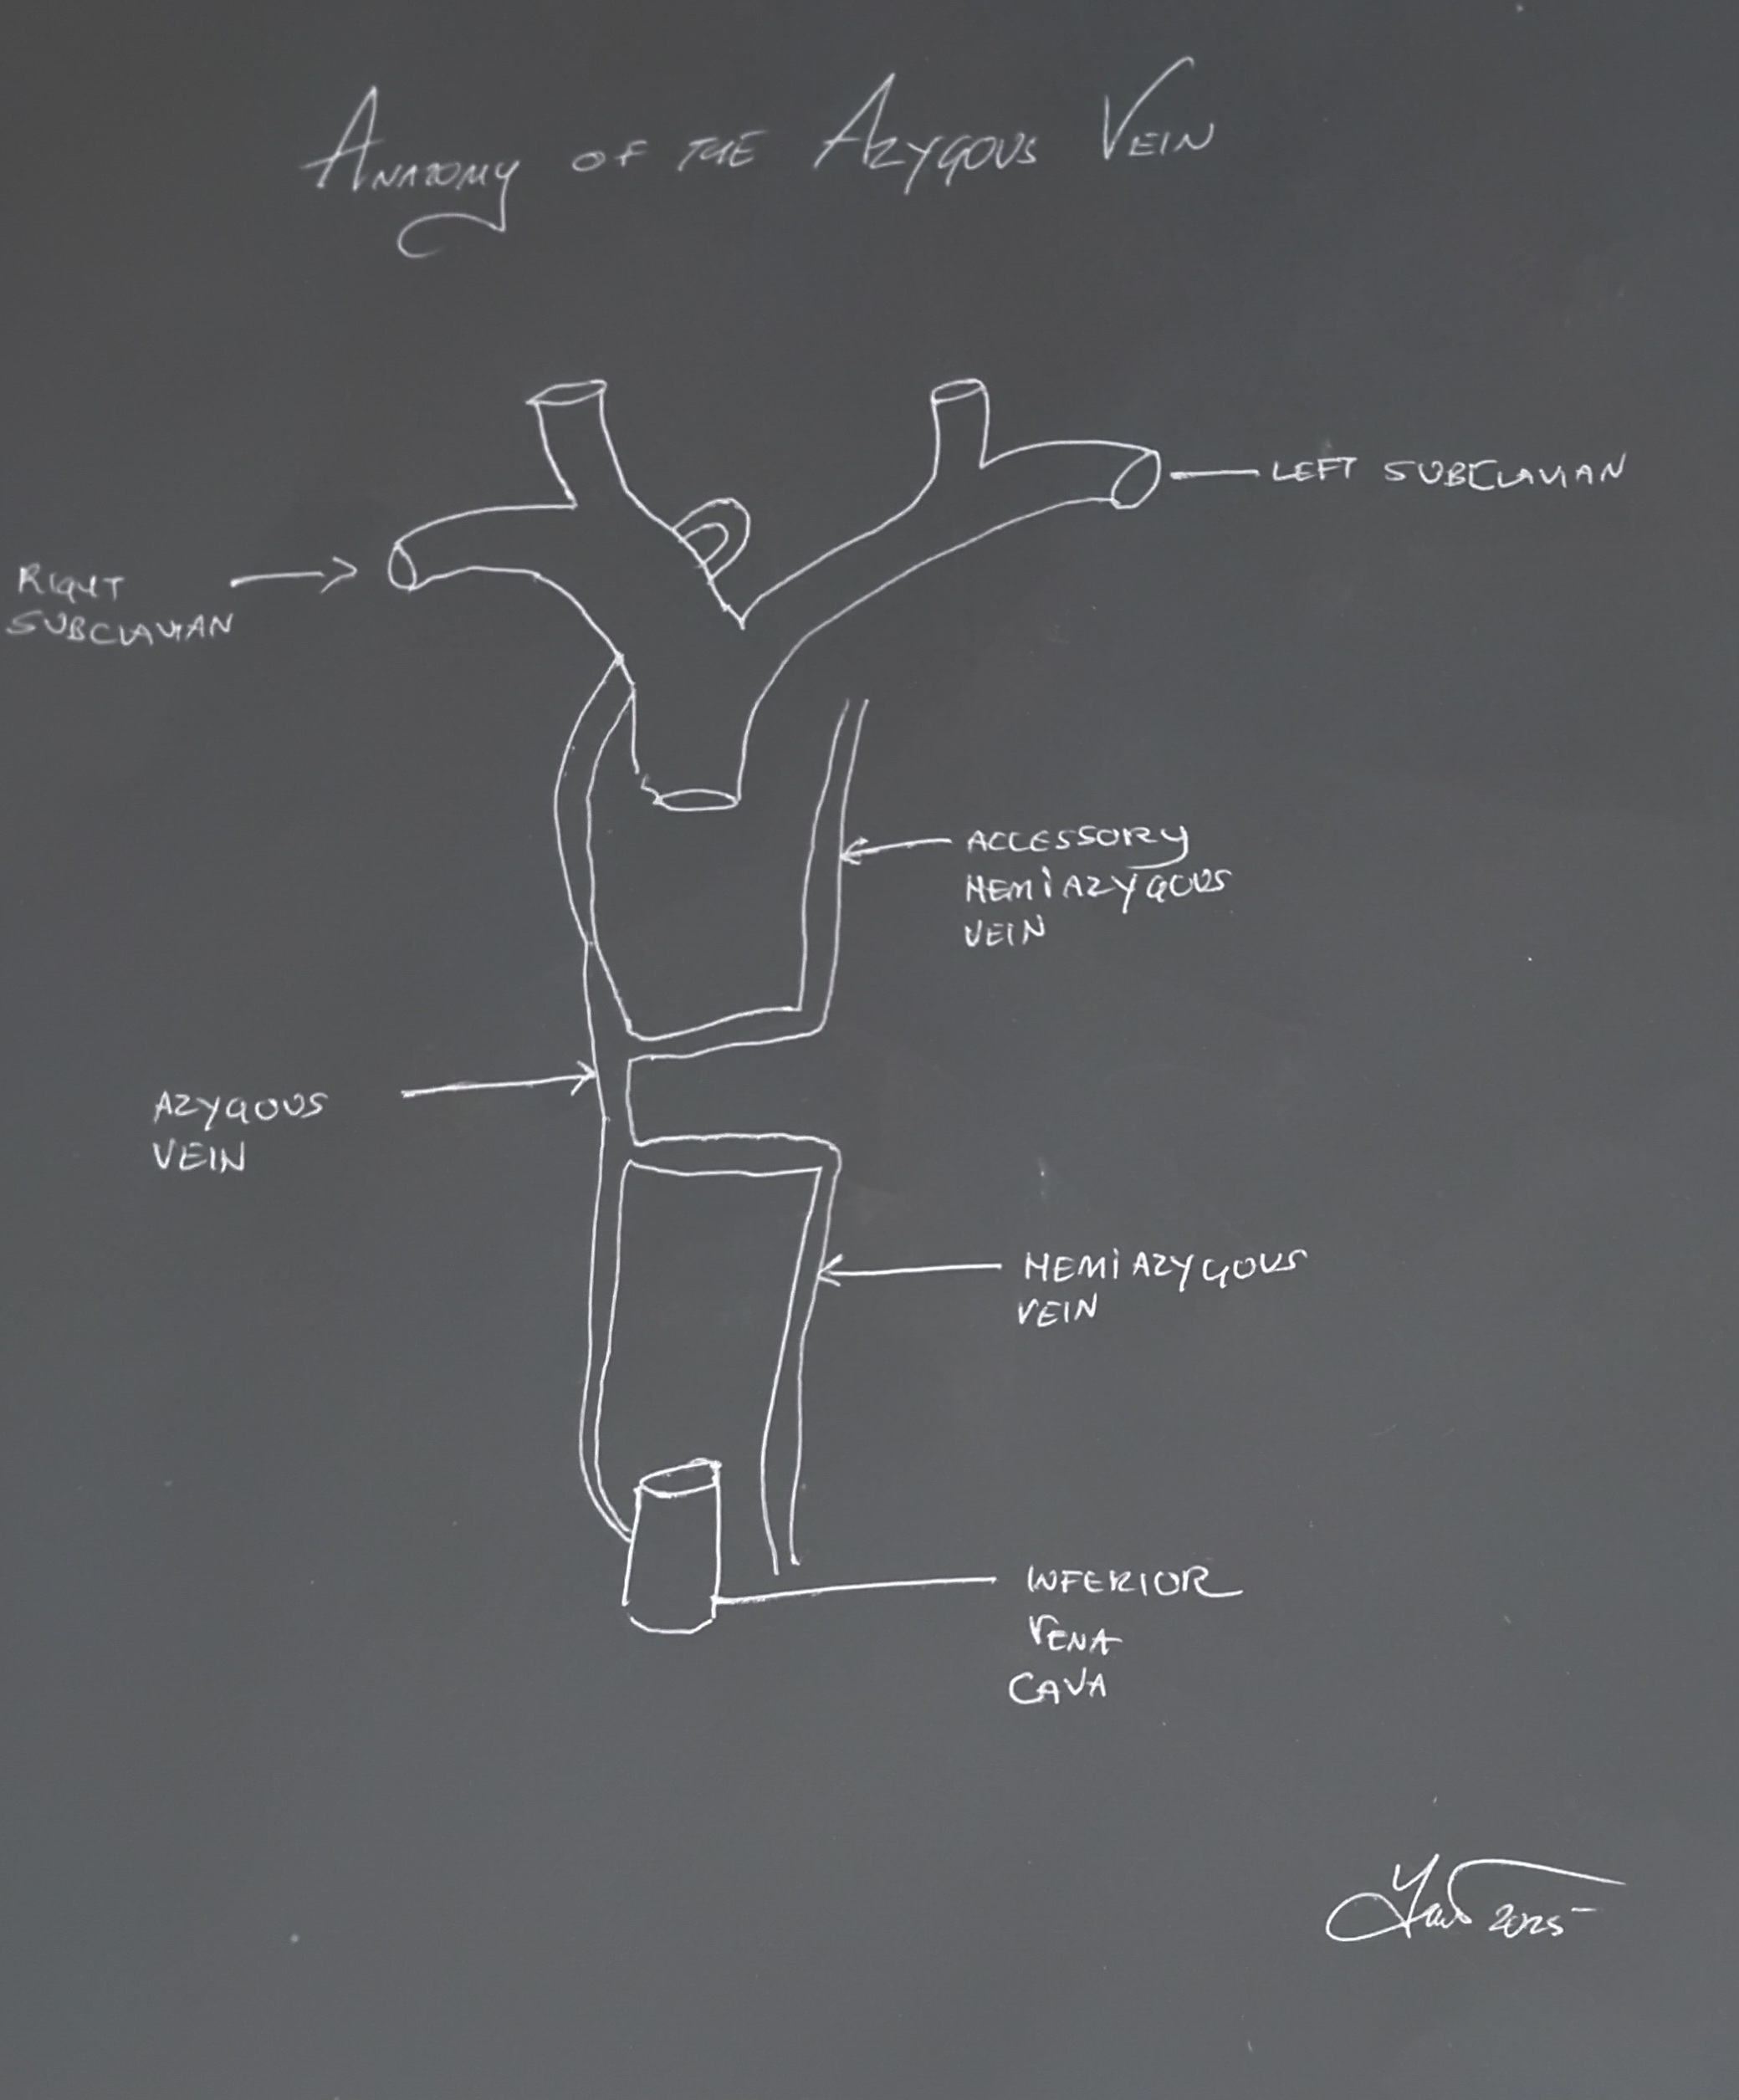 ANATOMY OF THE AZYGOUS VEIN
LEFT SUBCLAVIAN
RIGHT
SUBCLAVIAN
ACCESSORY
HEMIAZYGOUS
VEIN
AZYGOUS
VEIN
HEMIAZYGOUS
VEIN
INFERIOR
VENA
CAVA
2025